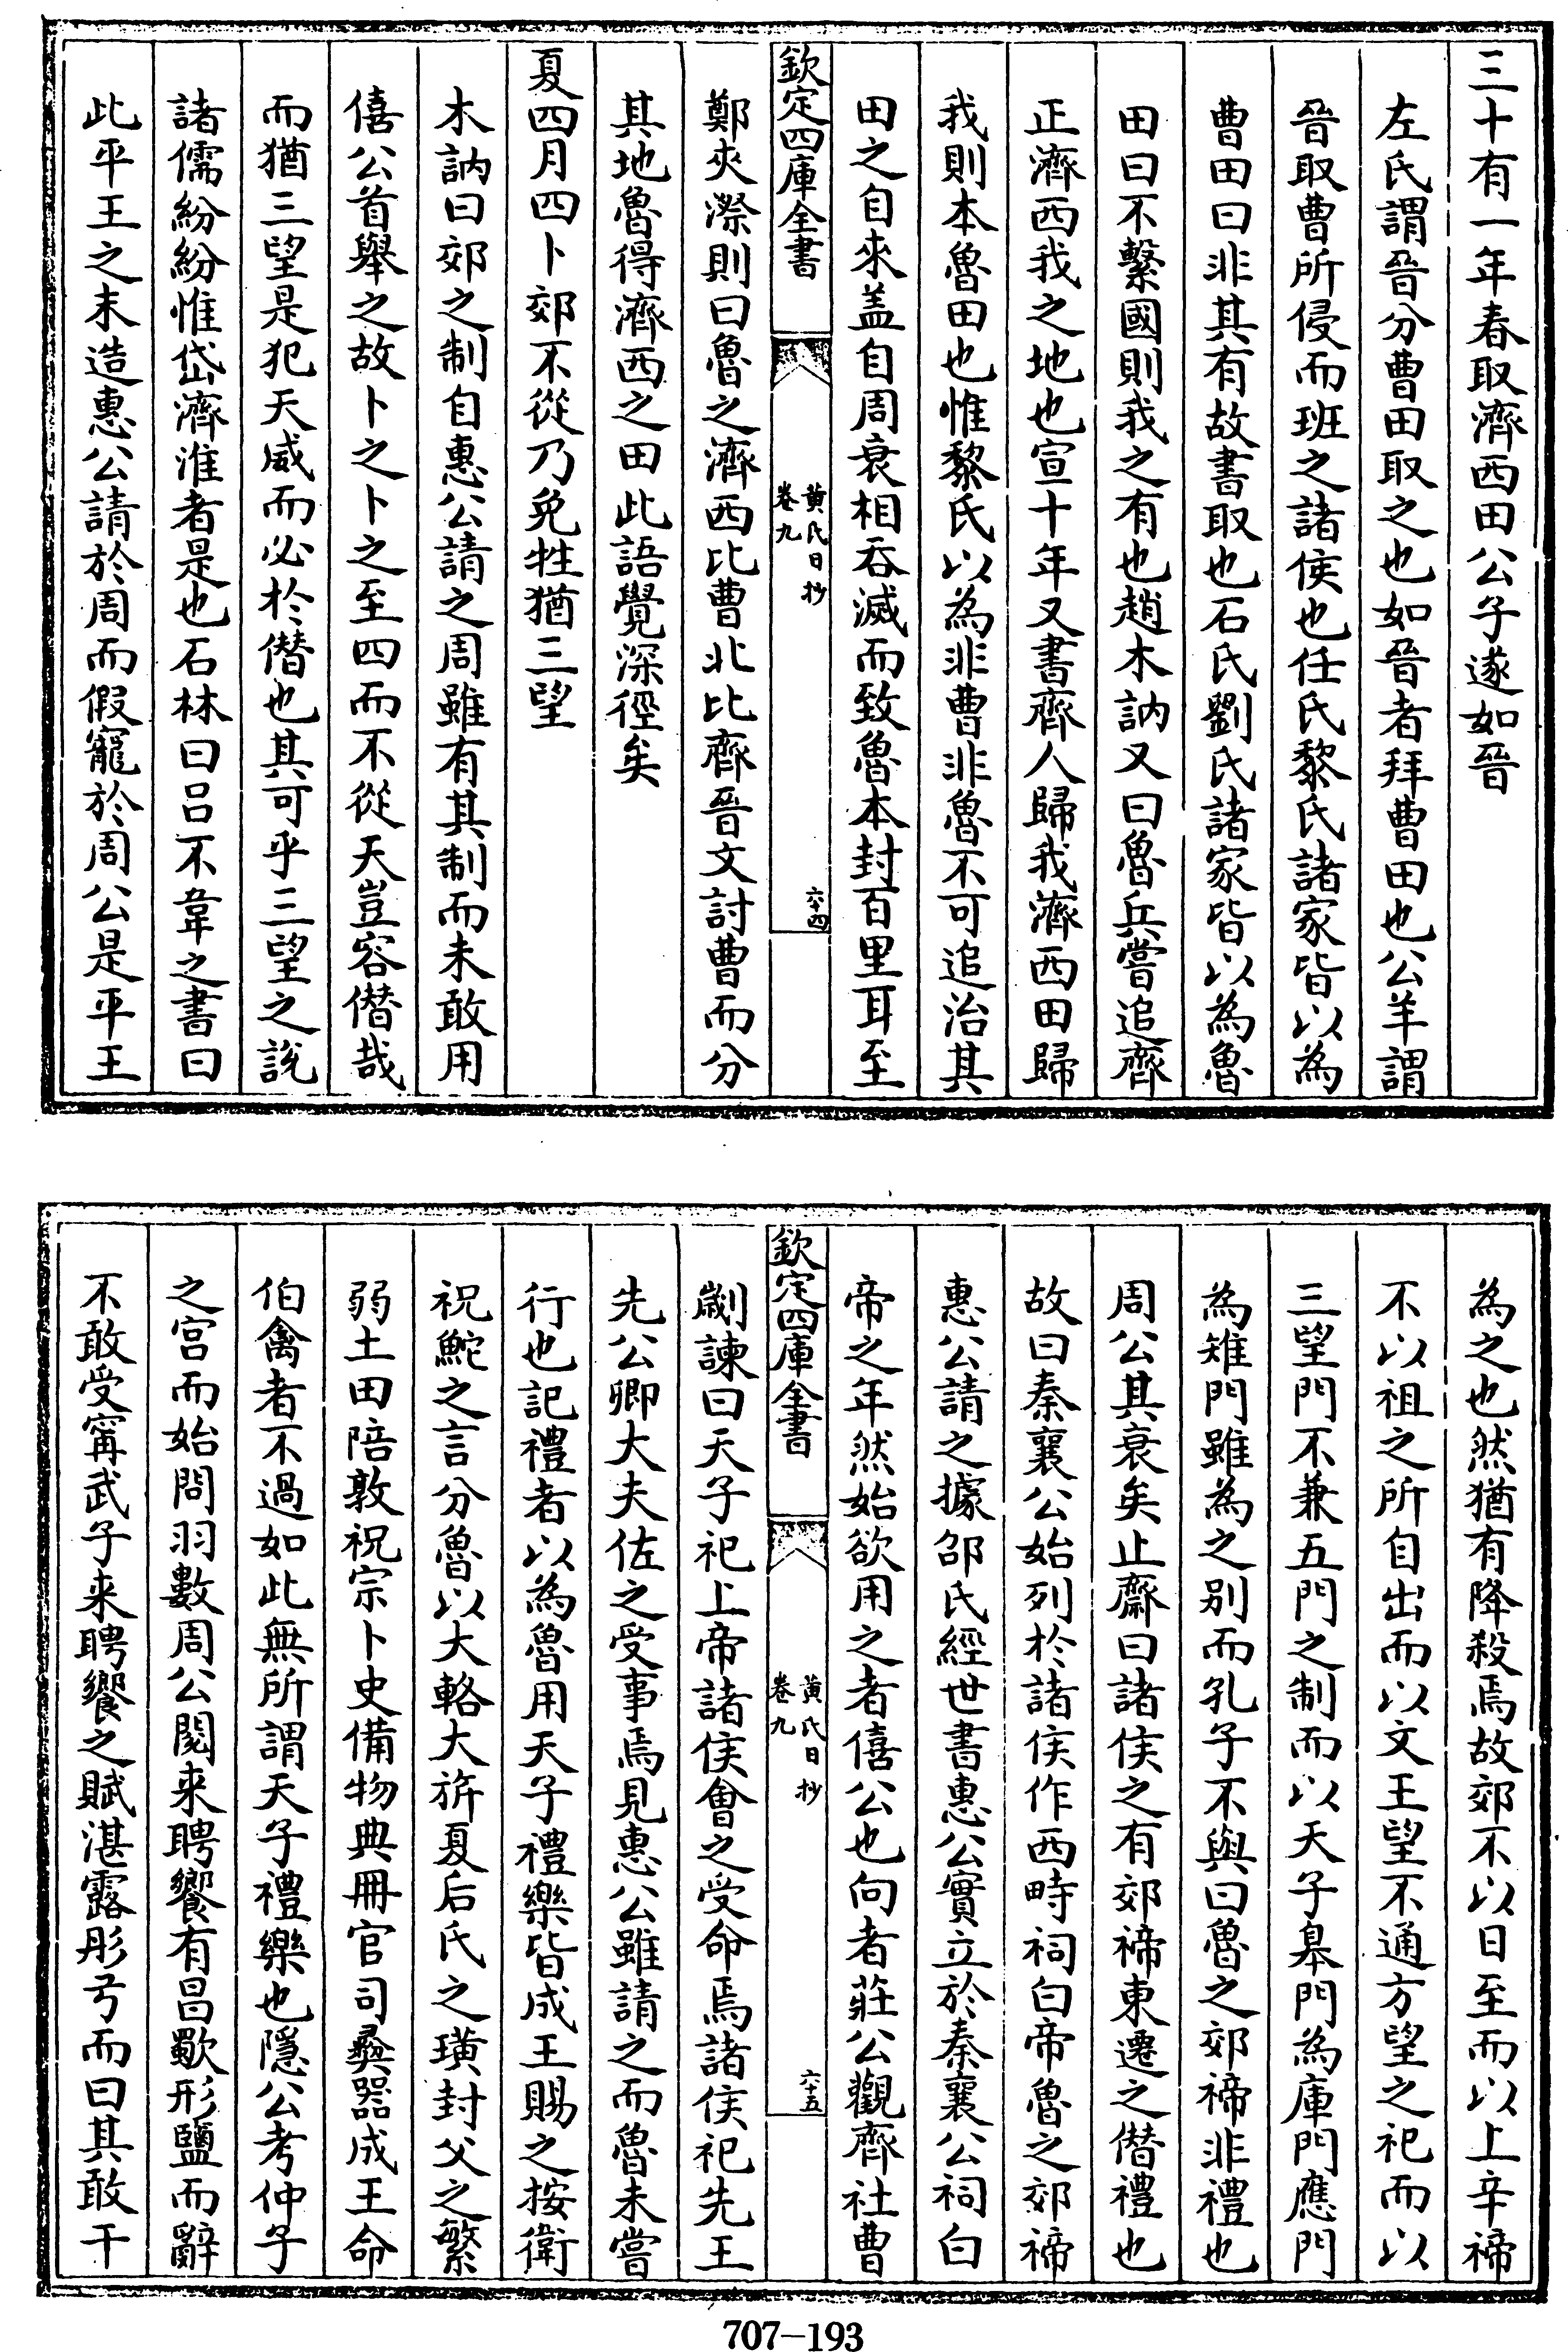 三十有一年春取濟西田公子遂如晉
左氏謂晉分曹田取之也如晉者拜曹田也公羊謂
晉取曹所侵而班之諸侯也任氏黎氏諸家皆以為
曹田曰非其有故書取也石氏劉氏諸家皆以為魯
田曰不繫國則我之有也趙木訥又曰魯兵嘗追齊
正濟西我之地也宣十年又書齊人歸我濟西田歸
我則本魯田也惟黎氏以為非曹非魯不可追治其
田之自來盖自周衰相吞滅而致魯本封百里耳至
欽定四庫全書
黄氏日抄
卷九
六十四
鄭夾漈則曰魯之濟西比曹北比齊晉文討曹而分
其地魯得濟西之田此語覺深徑矣
夏四月四卜郊不從乃免牲猶三望
木訥曰郊之制自惠公請之周雖有其制而未敢用
僖公首舉之故卜之卜之至四而不從天豈容僭哉
而猶三望是犯天威而必於僭也其可乎三望之說
諸儒紛紛惟岱濟淮者是也石林曰吕不韋之書曰
此平王之末造惠公請於周而假寵於周公是平王
為之也然猶有降殺焉故郊不以日至而以上辛禘
不以祖之所自出而以文王望不通方望之祀而以
三望門不兼五門之制而以天子臯門為庫門應門
為雉門雖為之别而孔子不與曰魯之郊禘非禮也
周公其衰矣止齋曰諸侯之有郊禘東遷之僭禮也
故曰秦襄公始列於諸侯作西畤祠白帝魯之郊禘
惠公請之據邵氏經世書惠公實立於秦襄公祠白
帝之年然始欲用之者僖公也向者莊公觀齊社曹
欽定四庫全書
黄氏日抄
卷九
六十五
劌諫曰天子祀上帝諸侯會之受命焉諸侯祀先王
先公卿大夫佐之受事焉見惠公雖請之而魯未嘗
行也記禮者以為魯用天子禮樂皆成王賜之按衛
祝鮀之言分魯以大輅大旂夏后氏之璜封父之繁
弱土田陪敦祝宗卜史備物典冊官司彞器成王命
伯禽者不過如此無所謂天子禮樂也隱公考仲子
之宫而始問羽數周公閱来聘饗有昌歜形鹽而辭
不敢受甯武子来聘饗之賦湛露彤弓而曰其敢干
707-193